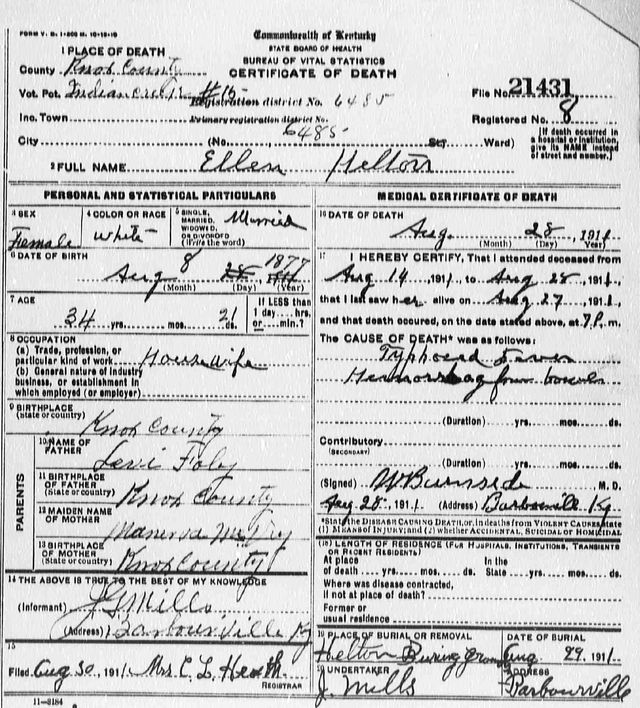 FORM V. S. 1-200 M. 10-12-10
Commonwealth of Kentucky
STATE BOARD OF HEALTH
BUREAU OF VITAL STATISTICS
CERTIFICATE OF DEATH
1 PLACE OF DEATH
County Knox County
Vot. Pct. #16
Registration district No. 6485
File No. 21431
Inc. Town
Primary registration district No. 6485
Registered No. 8
City (No. St; Ward)
[If death occurred in a hospital or institution, give its NAME instead of street and number.]
2 FULL NAME Ellen Helton
PERSONAL AND STATISTICAL PARTICULARS
3 SEX
Female
4 COLOR OR RACE
White
5 SINGLE, MARRIED, WIDOWED, OR DIVORCED
(Write the word)
Married
6 DATE OF BIRTH
Aug 8 28 1877
(Month) (Day) (Year)
7 AGE
34 yrs. mos. 21 ds.
If LESS than 1 day....hrs. or....min.?
8 OCCUPATION
(a) Trade, profession, or particular kind of work
Housewife
(b) General nature of industry business, or establishment in which employed (or employer)
9 BIRTHPLACE
(State or country)
Knox County
PARENTS
10 NAME OF FATHER
Levi Foley
11 BIRTHPLACE OF FATHER
(State or country)
Knox County
12 MAIDEN NAME OF MOTHER
13 BIRTHPLACE OF MOTHER
(State or country)
Knox County
14 THE ABOVE IS TRUE TO THE BEST OF MY KNOWLEDGE
(Informant) J G Mills
(Address) Barbourville Ky
15
Filed Aug 30, 1911 Mrs C. L. Heath.
REGISTRAR
11-3184
MEDICAL CERTIFICATE OF DEATH
16 DATE OF DEATH
Aug. 28, 1911
(Month) (Day) (Year)
17 I HEREBY CERTIFY, That I attended deceased from
Aug 14 1911, to Aug 28, 1911,
that I last saw her alive on Aug 27, 1911,
and that death occured, on the date stated above, at 7 P. m.
The CAUSE OF DEATH* was as follows:
Typhoid Fever
Hemorrhag from bowels
(Duration) yrs. mos. ds.
Contributory
(SECONDARY)
(Duration) yrs. mos. ds.
(Signed) Burnside M. D.
Aug 28, 1911 (Address) Barbourville Ky
*State the DISEASE CAUSING DEATH, or, in deaths from VIOLENT CAUSES, state
(1) MEANS OF INJURY; and (2) whether ACCIDENTAL, SUICIDAL or HOMICIDAL
(18) LENGTH OF RESIDENCE (FOR HOSPITALS, INSTITUTIONS, TRANSIENTS OR RECENT RESIDENTS)
At place of death yrs. mos. ds.
In the State yrs. mos. ds.
Where was disease contracted, if not at place of death?
Former or usual residence
19 PLACE OF BURIAL OR REMOVAL
Helton Buring Ground
DATE OF BURIAL
Aug 29, 1911
20 UNDERTAKER
J. Mills
ADDRESS
Barbourville